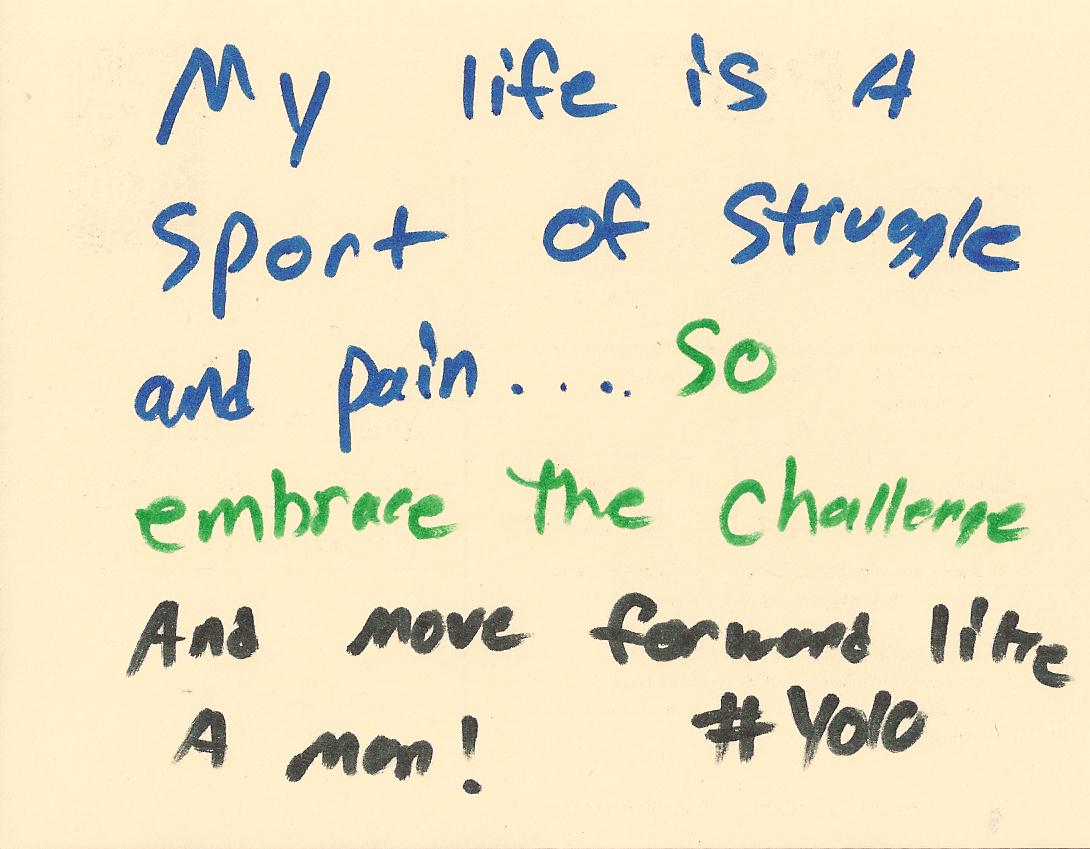 My life is A
Sport of Struggle
and pain.... So
embrace the Challenge
And move forward like
A man! #Yolo